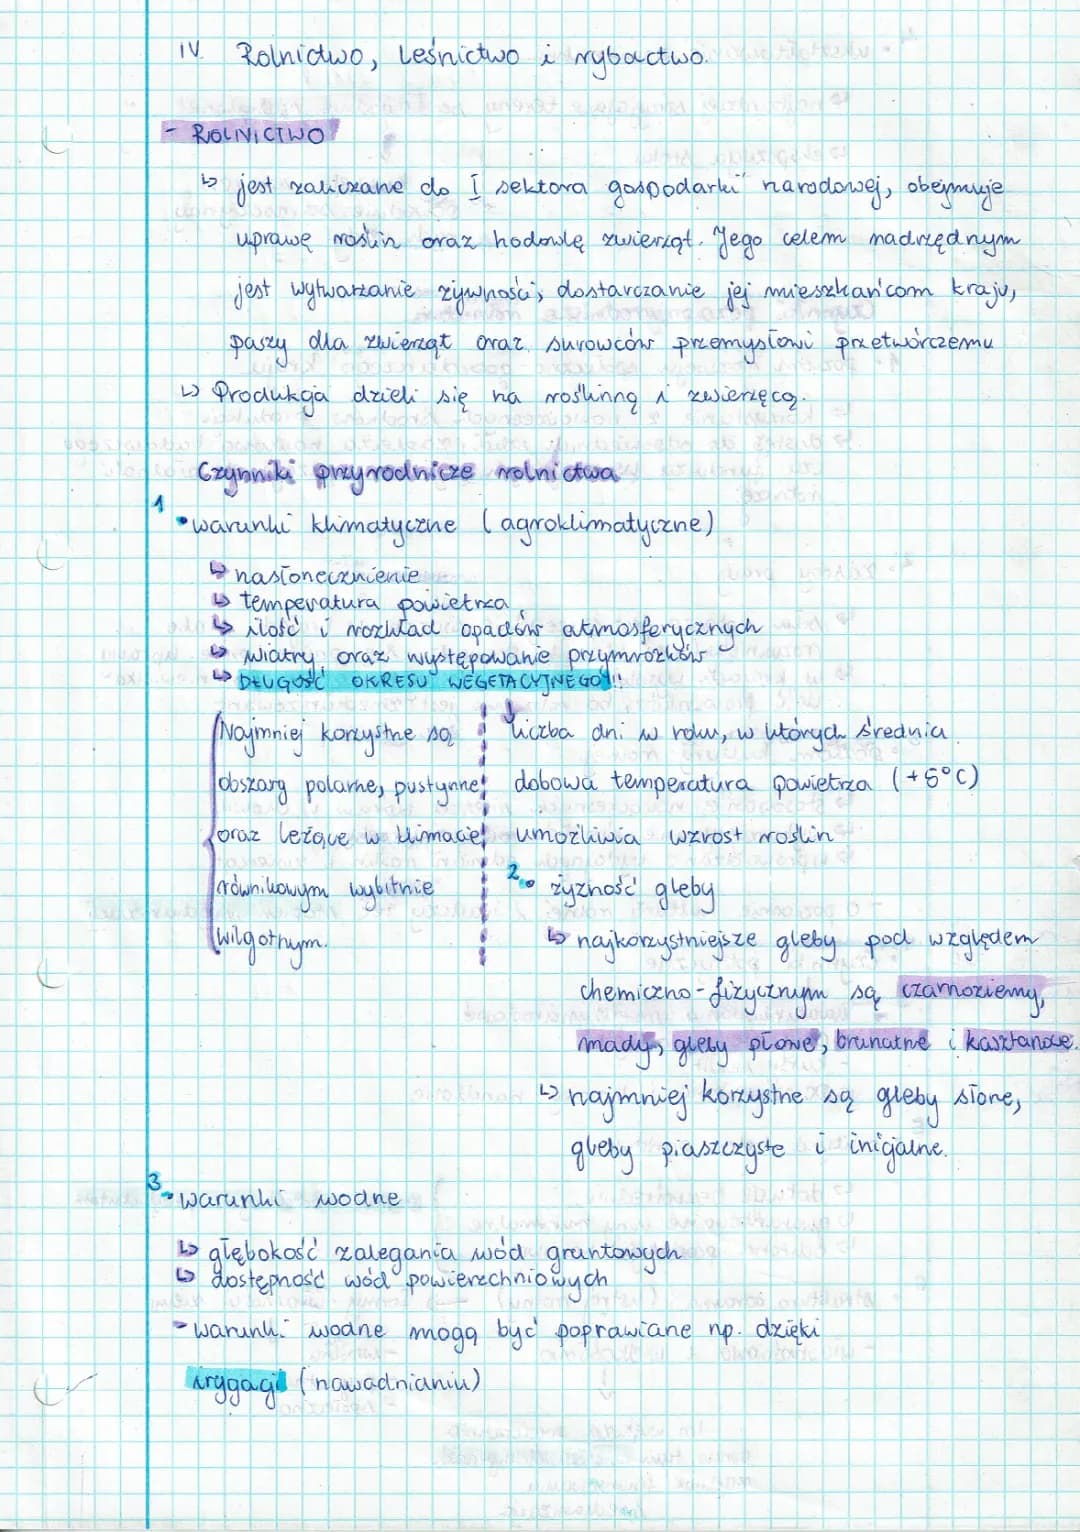 IV. Rolnictwo, leśnictwo i rybactwo.
- ROLNICTWO
↳ jest zaliczane do I sektora gospodarki narodowej, obejmuje
uprawę roślin oraz hodowlę zwierząt. Jego celem nadrzędnym
jest wytwarzanie żywności, dostarczanie jej mieszkańcom kraju,
paszy dla zwierząt oraz surowców przemysłowi przetwórczemu
↳ Produkcja dzieli się na roślinną i zwierzęcą.
Czynniki przyrodnicze rolnictwa
1
• warunki klimatyczne (agroklimatyczne)
↳ nasłonecznienie
↳ temperatura powietrza
↳ ilość i rozkład opadów atmosferycznych
↳ wiatry oraz występowanie przymrozków
↳ DŁUGOŚĆ OKRESU WEGETACYJNEGO!!!
Najmniej korzystne są
obszary polarne, pustynne
oraz leżące w klimacie
równikowym wybitnie
wilgotnym.
↓ liczba dni w roku, w których średnia
dobowa temperatura powietrza (+5°C)
umożliwia wzrost roślin
2. • żyzność gleby
↳ najkorzystniejsze gleby pod względem
chemiczno-fizycznym są czarnoziemy,
mady, gleby płowe, brunatne i kasztanowe.
↳ najmniej korzystne są gleby słone,
gleby piaszczyste i inicjalne.
3. • warunki wodne
↳ głębokość zalegania wód gruntowych
↳ dostępność wód powierzchniowych
- warunki wodne mogą być poprawiane np. dzięki
irygacji (nawadnianiu)